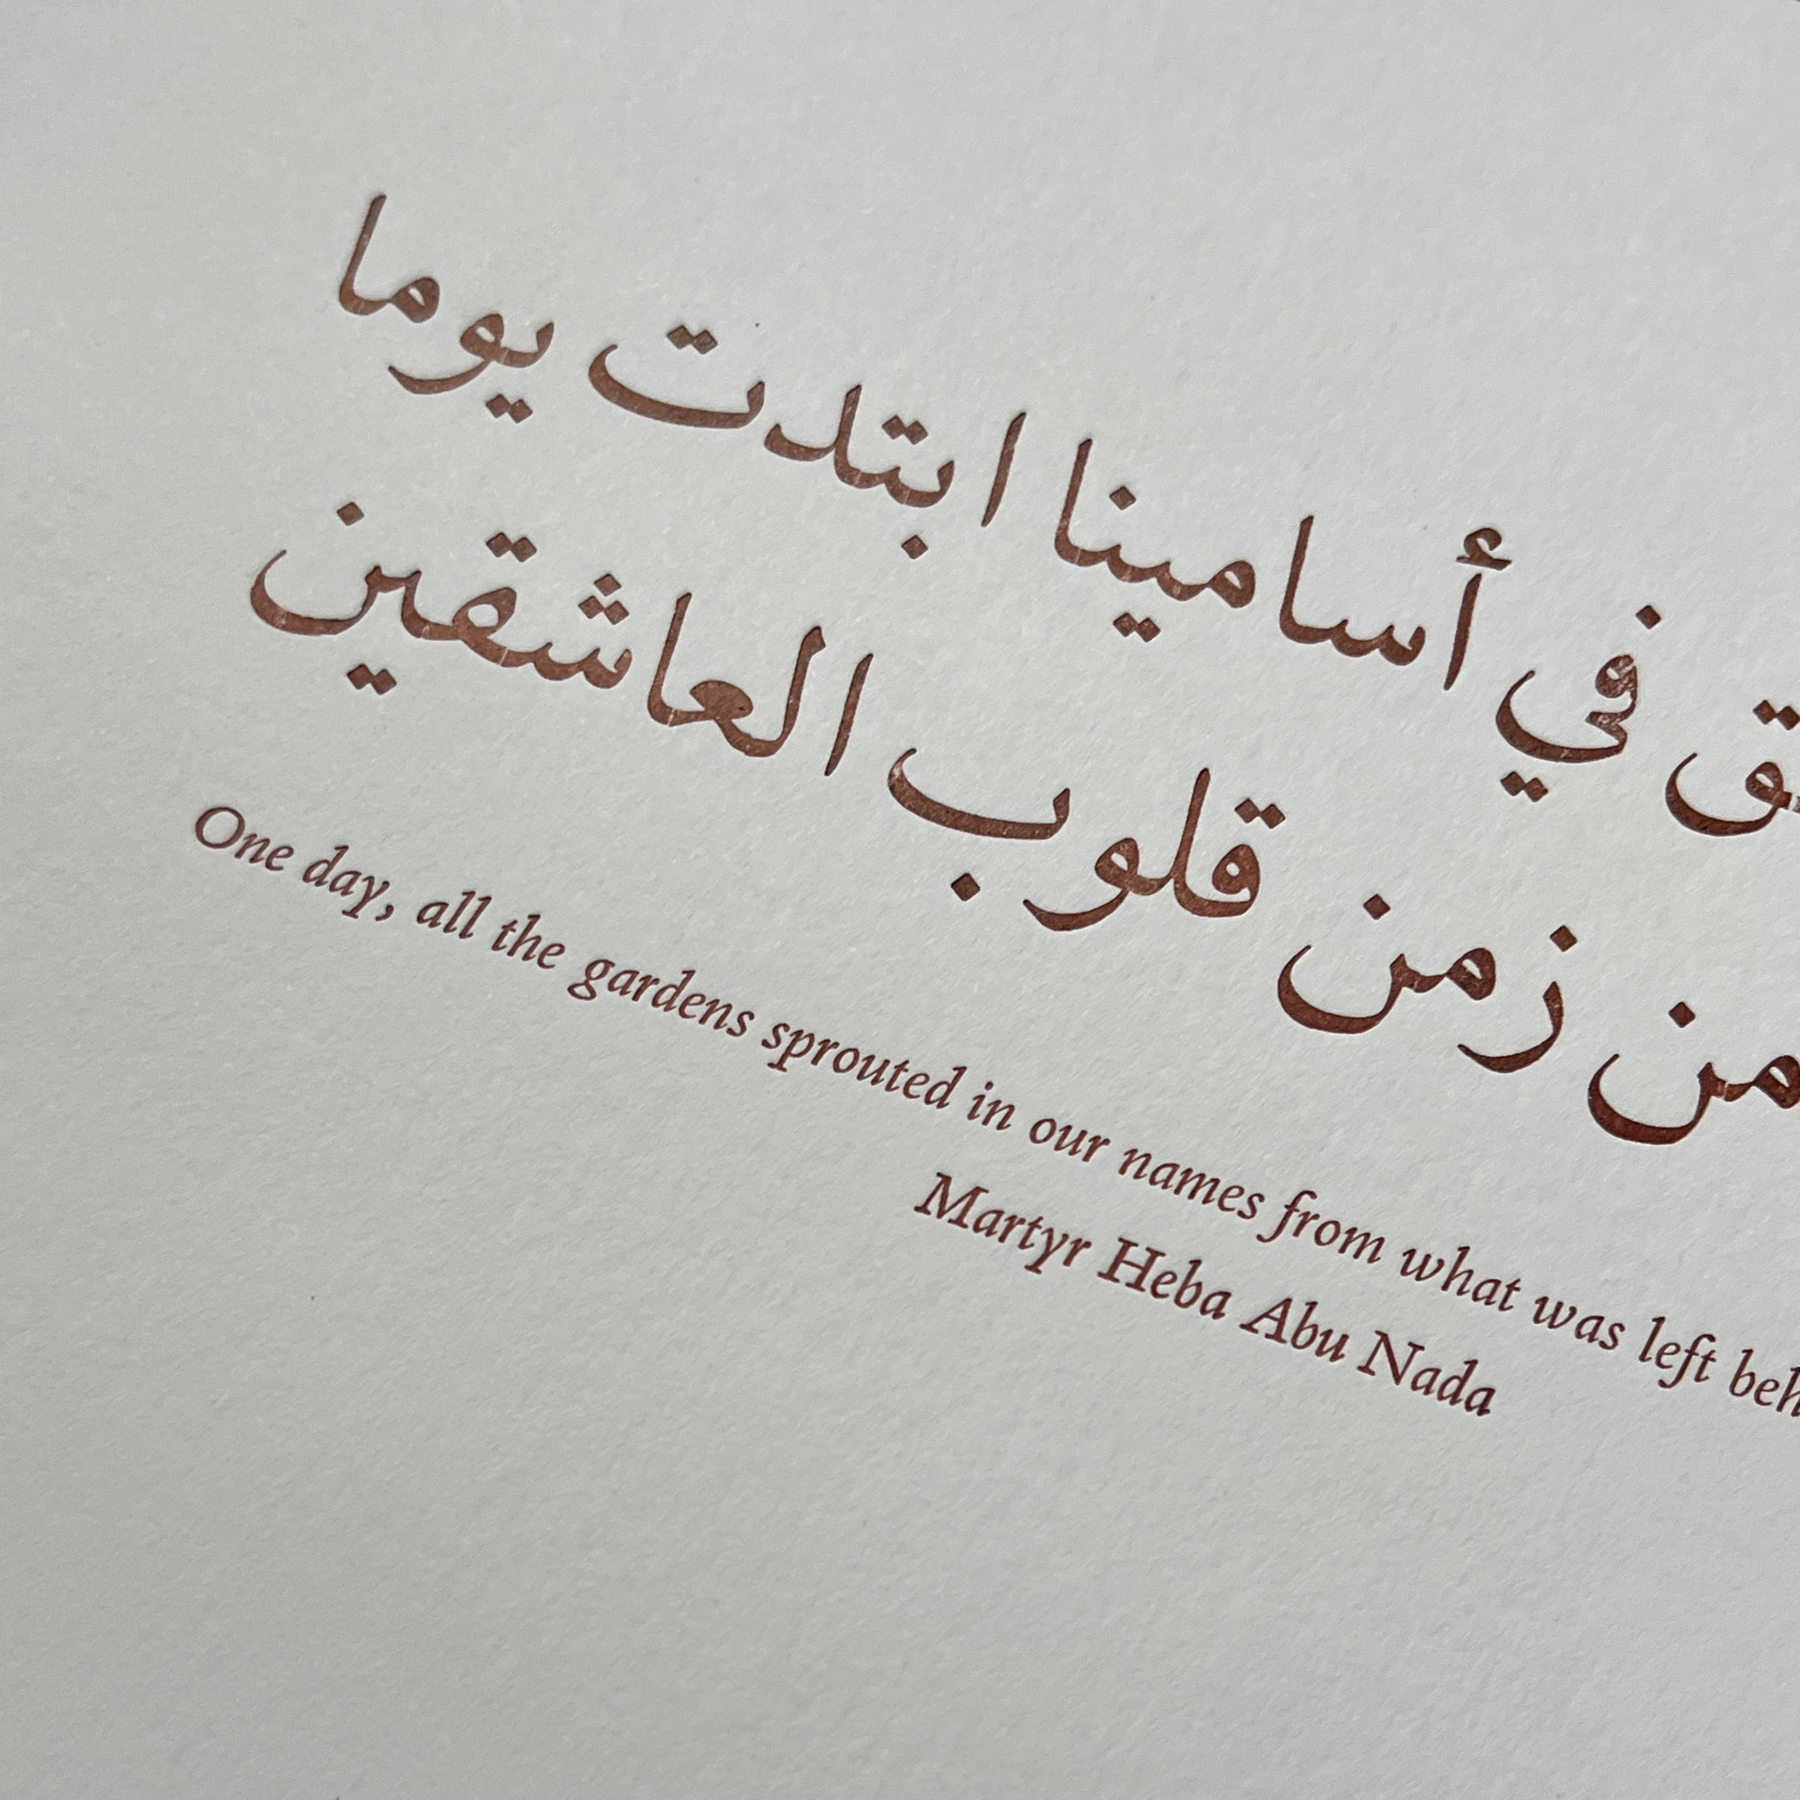 في أسامينا ابتدت يوما
من زمن قلوب العاشقين
One day, all the gardens sprouted in our names from what was left
Martyr Heba Abu Nada